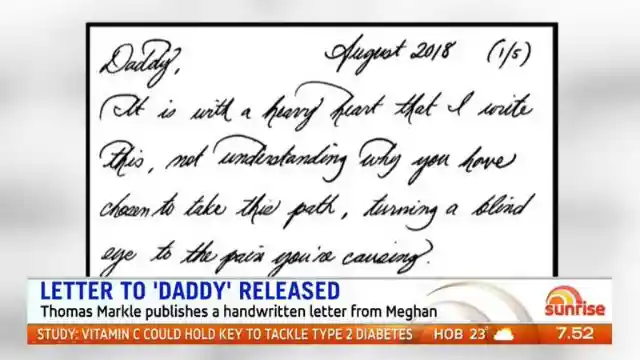 Daddy, August 2018 (1/5)
It is with a heavy heart that I write
this, not understanding why you have
chosen to take this path, turning a blind
eye to the pain you're causing.
LETTER TO 'DADDY' RELEASED
Thomas Markle publishes a handwritten letter from Meghan
sunrise
STUDY: VITAMIN C COULD HOLD KEY TO TACKLE TYPE 2 DIABETES HOB 23° 7.52